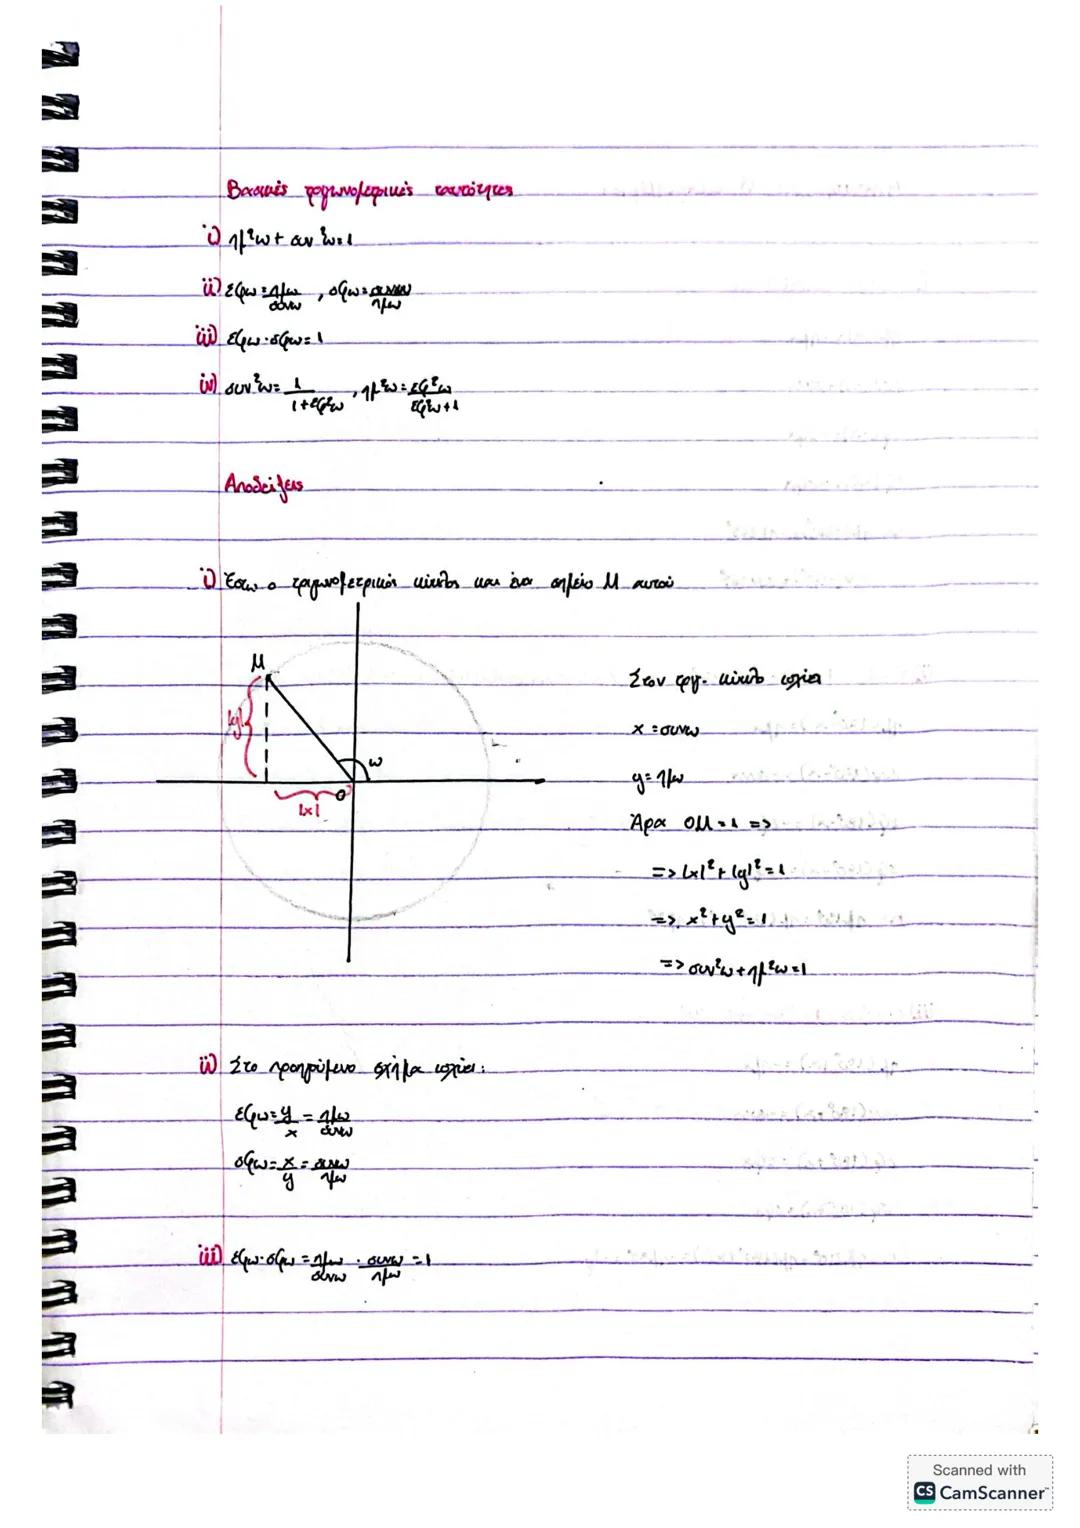 Βασικές τριγωνομετρικές ταυτότητες
i) ημ²ω + συν²ω = 1
ii) εφω = ημω/συνω , σφω = συνω/ημω
iii) εφω · σφω = 1
iv) συν²ω = 1/(1+εφ²ω) , ημ²ω = εφ²ω/(εφ²ω+1)
Αποδείξεις
i) Έστω ο τριγωνομετρικός κύκλος και ένα σημείο Μ αυτού
Μ
|y|
ω
Ο
|x|
Στον τριγ. κύκλο ισχύει
x = συνω
y = ημω
Άρα ΟΜ = 1 =>
=> |x|² + |y|² = 1
=> x² + y² = 1
=> συν²ω + ημ²ω = 1
ii) Στο προηγούμενο σχήμα ισχύει:
εφω = y/x = ημω/συνω
σφω = x/y = συνω/ημω
iii) εφω · σφω = ημω/συνω · συνω/ημω = 1
Scanned with
CS CamScanner